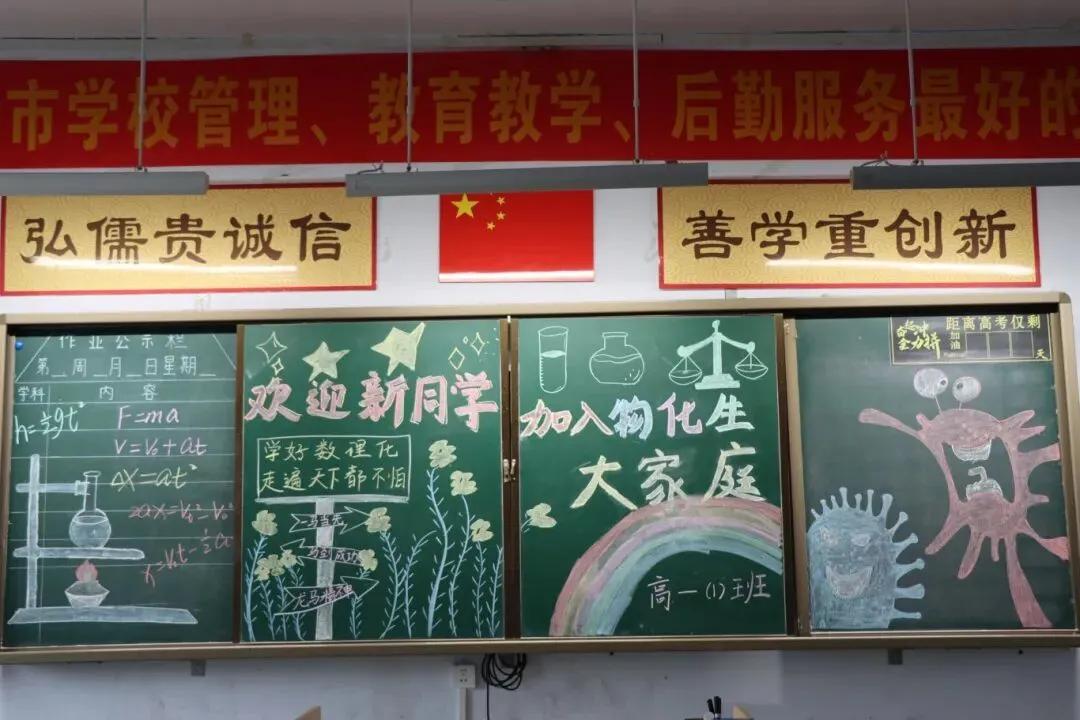 市学校管理、教育教学、后勤服务最好的
弘儒贵诚信
善学重创新
作业公示栏
第_周_月_日星期_
学科 内容
h=½gt²
F=ma
V=V₀+at
ΔX=at²
2ax=V²-V₀²
x=V₀t-½a
欢迎新同学
学好数理化
走遍天下都不怕
一马当先
马到成功
龙马精神
加入物化生
大家庭
高一(1)班
全力拼
距离高考仅剩
加油
天